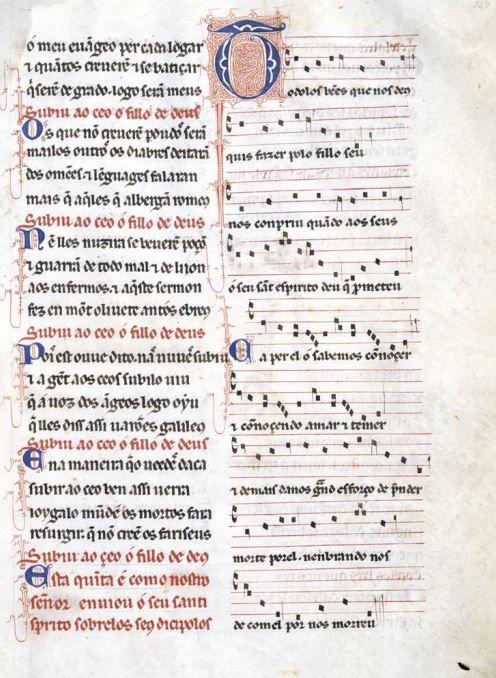 o meu euãgeo per cada logar
⁊ quãtos creuerẽ ⁊ se batiçar
q̃ serẽ de grado. logo serã meus
Subiu ao ceo o fillo de deus
Os que nõ creuerẽ
mailos outrõ os diabres deitarã
dos omẽes ⁊ lẽguages falaran
mais q̃ aq̃les q̃ albergã
Subiu ao ceo o fillo de deus
Nẽ lles nuzira se beuerẽ poçõ
⁊ guarrã de todo mal ⁊ de lijon
aos enfermos. ⁊ aq̃ste sermon
fez en mõt oliuete antos ebreos
Subiu ao ceo o fillo de deus
Poi est ouue dito. nã nuuẽ subiu
⁊ a gẽt aos ceos subilo uiu
q̃ a uoz dos ãgeos logo oyu
q̃ lles diss assi uarões galileos
Subiu ao ceo o fillo de deus
Ena maneira q̃o ueedẽ daca
subir ao ceo ben assi uerra
ioygalo mũdẽ os mortos fara
resurgir. q̃ nõ creẽ os fariseus
Subiu ao çeo o fillo de deos
Esta quita é como nostro
señor enuiou o seu santi
sprito sobre los seos dicipolos
Todolos bẽes que nos deos
quis fazer polo fillo seu
nos conpriu quãdo aos seus
o seu sant espirito deu q̃ prometeu
Ca per el o sabemos coñoçer
⁊ coñoçendo amar ⁊ temer
⁊ demais danos grãd esforço de prender
morte por el. nenbrando nos
de com el por nos morreu